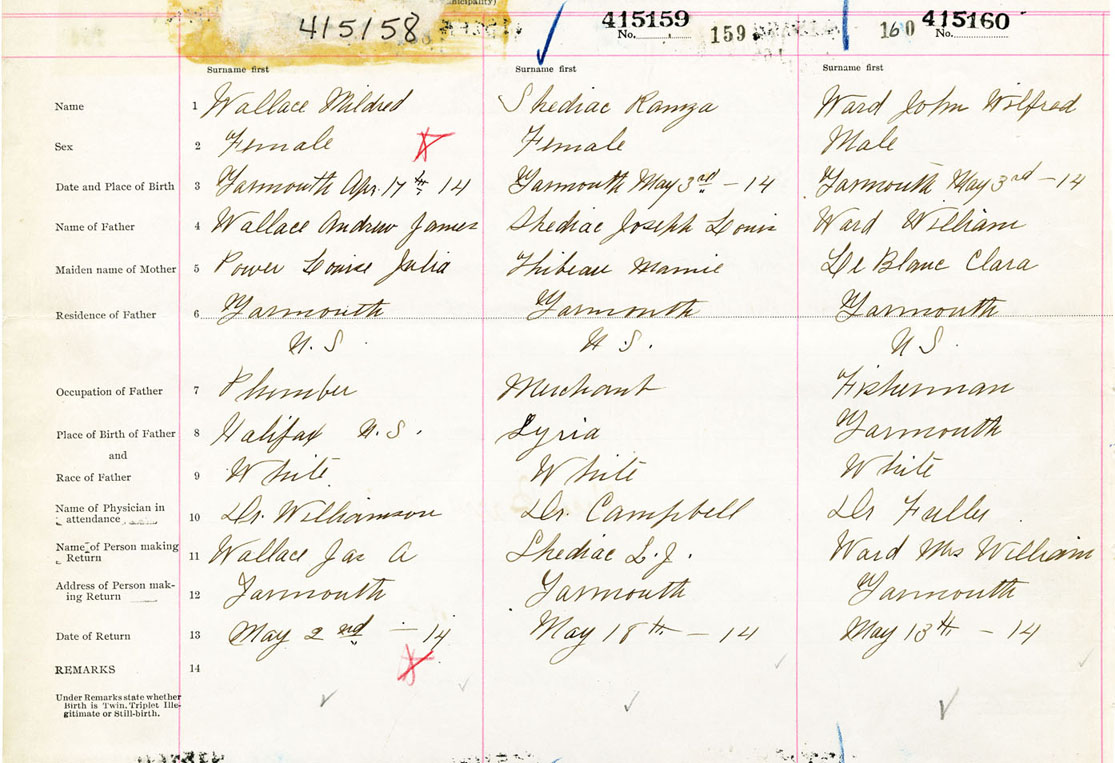 415158
415159
No.
159
160
415160
No.
Surname first
Surname first
Surname first
Name 1 Wallace Mildred Shediac Ramza Ward John Wilfred
Sex 2 Female Female Male
Date and Place of Birth 3 Yarmouth Apr. 17th 14 Yarmouth May 3rd - 14 Yarmouth May 3rd - 14
Name of Father 4 Wallace Andrew James Shediac Joseph Louis Ward William
Maiden name of Mother 5 Power Louise Julia Thibeau Mamie Le Blanc Clara
Residence of Father 6 Yarmouth Yarmouth Yarmouth
N.S. N.S. N S.
Occupation of Father 7 Plumber Merchant Fisherman
Place of Birth of Father 8 Halifax N.S. Syria Yarmouth
and
Race of Father 9 White White White
Name of Physician in
attendance 10 Dr. Williamson Dr. Campbell Dr Fuller
Name of Person making
Return 11 Wallace Jas A Shediac L.J. Ward Mrs William
Address of Person mak-
ing Return 12 Yarmouth Yarmouth Yarmouth
Date of Return 13 May 2nd - 14 May 18th - 14 May 13th - 14
REMARKS 14
Under Remarks state whether
Birth is Twin, Triplet Ille-
gitimate or Still-birth.